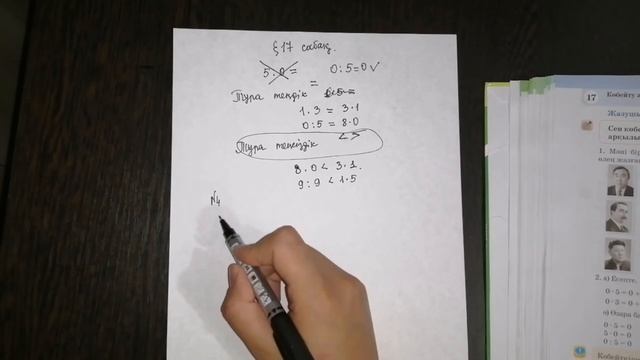 §17 сабақ.
5:0=
0:5=0✓
=
Тура теңдік
1·3=3·1
0:5=8·0
< >
Тура теңсіздік
8·0<3·1.
9:9<1·5
№4
17
Көбейту
Жазушы
Сен көбе
арқылы
1. Мәні бір
өлең жазған
2. а) Есепте.
0·5=0
0·3=0
ә) Өзара ба
0·5=0
5·0=0
0:5=0
Көбейті